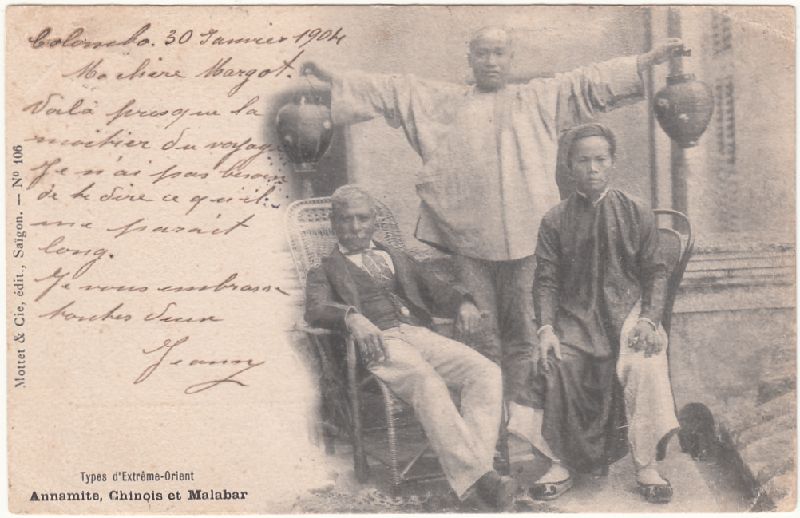 Colombo. 30 Janvier 1904
Ma chère Margot.
Voilà presque la
moitier du voyage
Je n'ai pas besoin
de te dire ce qu'il
me parait
long.
Je vous embrasse
toutes deux
Jeanny
Mottet & Cie, édit., Saïgon. — Nº 106
Types d'Extrême-Orient
Annamite, Chinois et Malabar